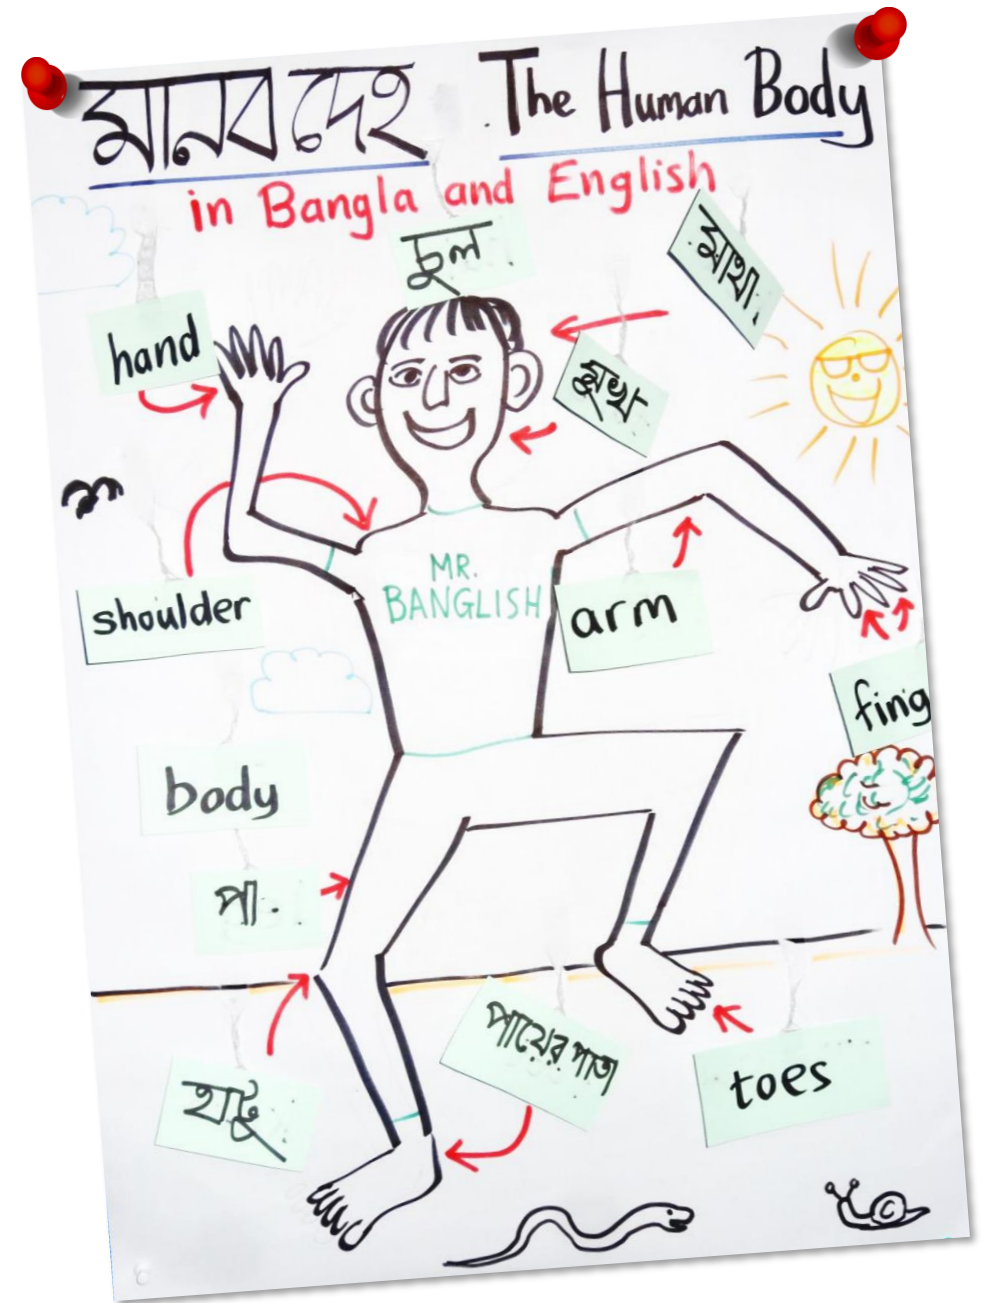 মানব দেহ The Human Body
in Bangla and English
চুল
মাথা
hand
মুখ
MR.
BANGLISH
shoulder
arm
fing
body
পা
পায়ের পাতা
toes